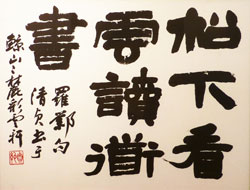 松下看
雲讀道
書
羅鄴句
清貞書于
山之麓彩雲軒